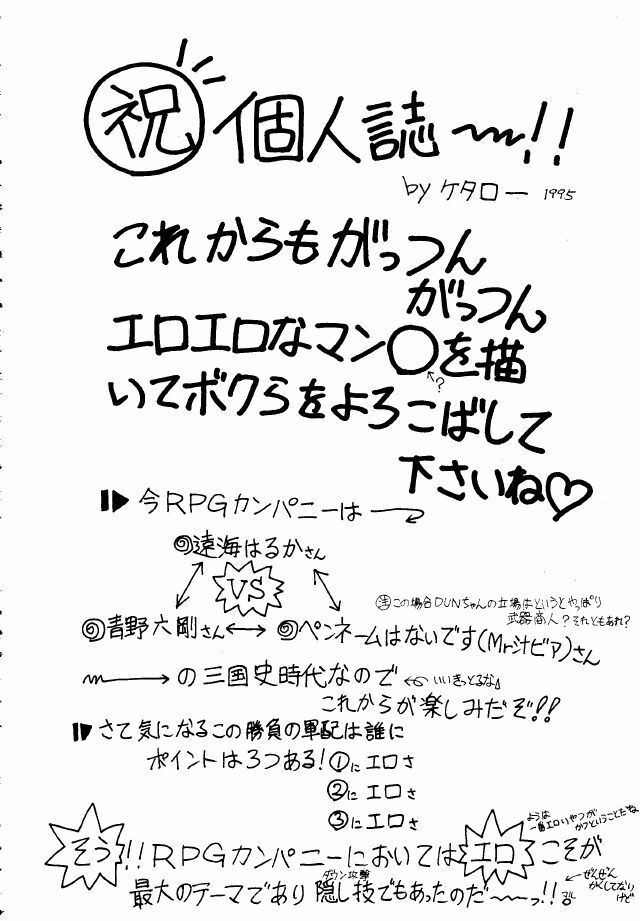 祝 個人誌〜!!
by ケタロー 1995
これからもがっつん
がっつん
エロエロなマン〇を描
?
いてボクらをよろこばして
下さいね♡
今RPGカンパニーは
遠海はるかさん
VS
注この場合DUNちゃんの立場はというとやっぱり
武器商人?それともあれ?
青野六剛さん ↔ ペンネームはないです(Mr.汁ビア)さん
の三国史時代なので ←いいきっとるな。
これからが楽しみだぞ!!
さて気になるこの勝負の軍配は誰に
ポイントは3つある!①にエロさ
②にエロさ
③にエロさ
ようは
一番エロいやつが
かつということだね
そう!!RPGカンパニーにおいてはエロこそが
ダウン攻撃
最大のテーマであり隠し技でもあったのだ〜っ!!
ぜんぜん
かくしてない
けど